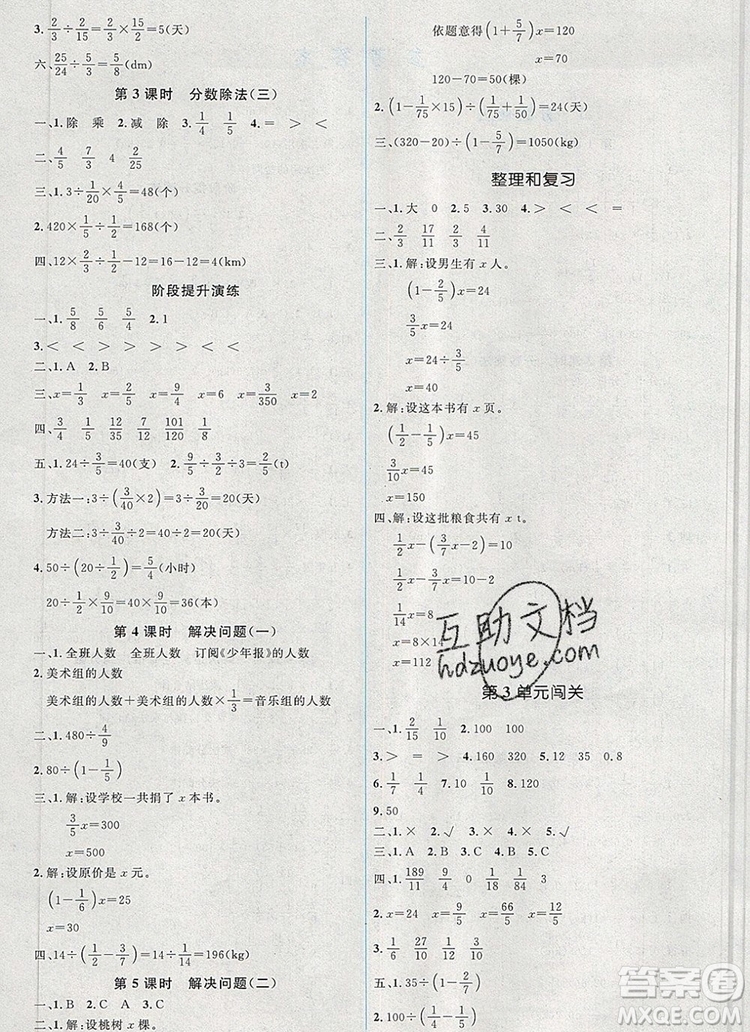 3. 2/3÷2/15=2/3×15/2=5(天)
六、25/24÷5/8=5/3(dm)
第 3 课时 分数除法(三)
一、1. 除 乘 2. 减 除 3. 1/4 1/5 4. = > <
二、4/5 7/3 4 25/8
三、1. 3÷1/20×4/5=48(个)
2. 420×1/5÷1/2=168(个)
四、12×2/3÷1/2-12=16-12=4(km)
阶段提升演练
一、1. 5/8 5/6 5/4 2. 1
3. < < > > > < <
二、1. A 2. B
三、x=1/3 x=2/5 x=9/4 x=6 x=3/350 x=2/3
四、3/10 12/35 12/7 101/100 19/120
五、1. 24÷3/5=40(支) 2. 9/5÷3/5÷3=1(t)
3. 方法一:3÷(3/40×2)=3÷3/20=20(天)
方法二:3÷3/40÷2=40÷2=20(天)
4. 50÷(20÷1/2)=5/4(小时)
20÷1/2×9/10=40×9/10=36(本)
第 4 课时 解决问题(一)
一、1. 全班人数 全班人数 订阅《少年报》的人数
2. 美术组的人数
美术组的人数+美术组的人数×1/3=音乐组的人数
二、1. 480÷4/9
2. 80÷(1-1/5)
三、1. 解:设学校一共捐了 x 本书。
3/5x=300
x=500
2. 解:设原价是 x 元。
(1-1/6)x=25
x=30
四、14÷(1/2-3/7)=14÷1/14=196(kg)
第 5 课时 解决问题(二)
一、1. B C A 2. B
二、1. 解:设桃树 x 棵。
依题意得(1+5/7)x=120
x=70
120-70=50(棵)
2. (1-1/75×15)÷(1/75+1/50)=24(天)
三、(320-20)÷(1-5/7)=1050(kg)
整理和复习
一、1. 大 0 2. 5 3. 30 4. > < < =
二、2/3 17/11 2/11 3/4
三、1. 解:设男生有 x 人。
(1-2/5)x=24
3/5x=24
x=24÷3/5
x=40
2. 解:设这本书有 x 页。
(1/2-1/5)x=45
3/10x=45
x=150
四、解:设这批粮食共有 x t。
1/2x-(3/7x-2)=10
1/2x-3/7x=10-2
1/14x=8
x=8×14
x=112
第 3 单元闯关
一、1. 2/15 6/19 2. 100 100
3. > = > 4. 160 320 5. 12 35 0.8
6. 1/7 1/4 7. 9/10 1/10 8. 120
9. 50
二、1. × 2. √ 3. × 4. × 5. √
三、1. B 2. A 3. C 4. B 5. C
四、1. 189/11 9/4 0 4/9
2. x=2/5 x=9/4 x=66/5 x=55/2
五、1. 35÷(1-1/8)=40
互助文档
hdzuoye.com
答案圈
MXQE.COM